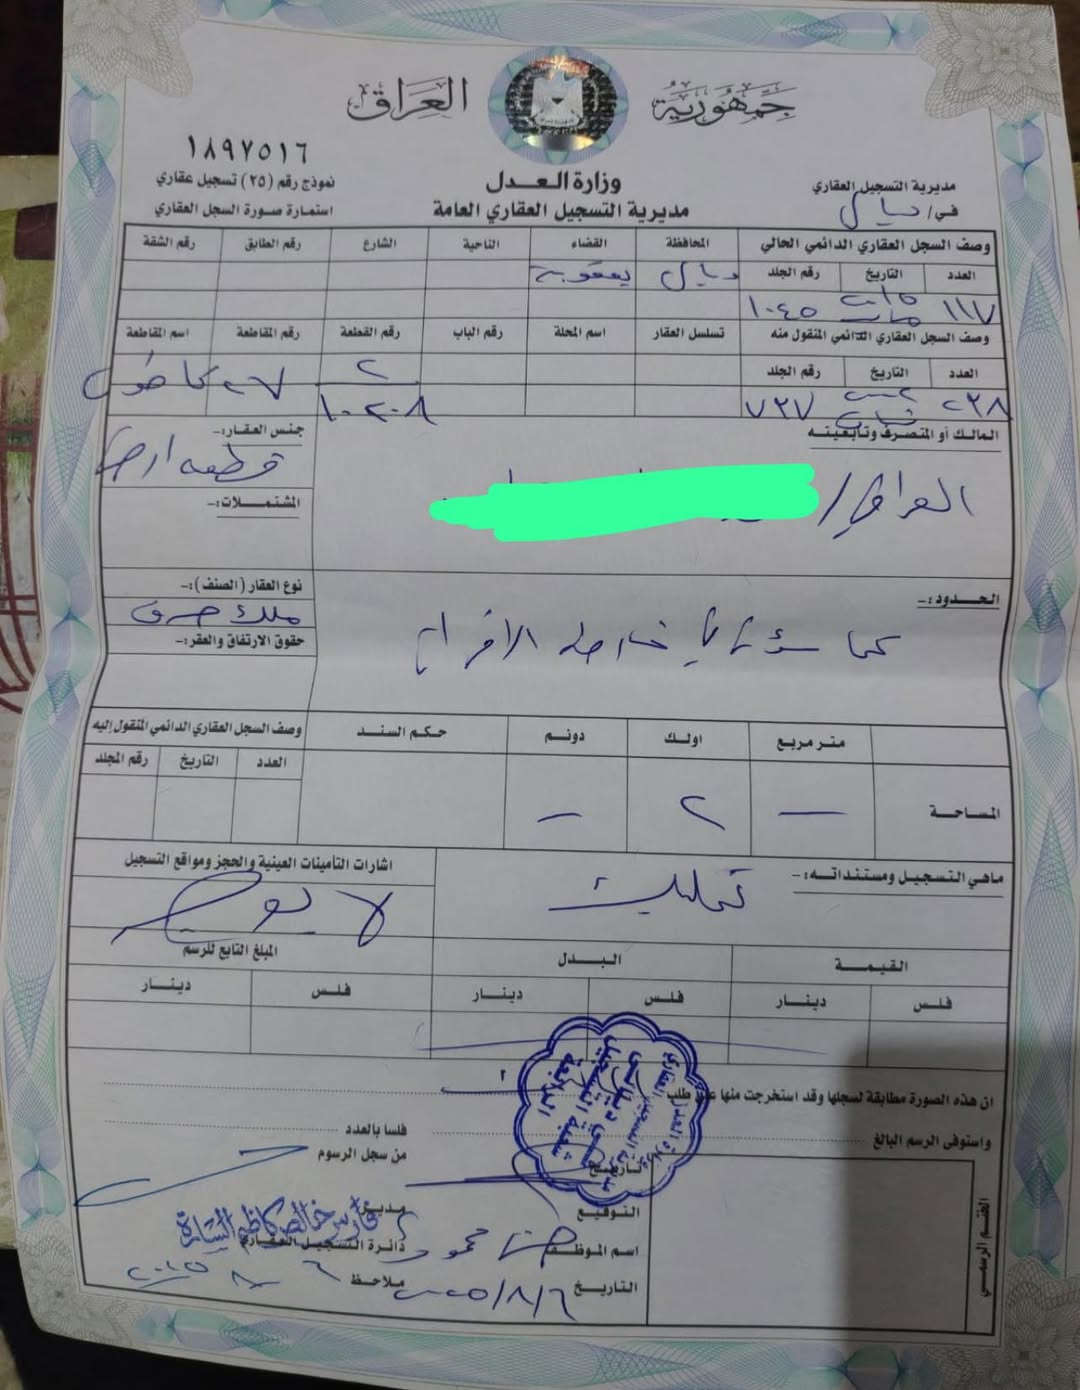 جمهورية العراق
١٨٩٧٥١٦
وزارة العدل
مديرية التسجيل العقاري العامة
نموذج رقم (٢٥) تسجيل عقاري
استمارة صورة السجل العقاري
مديرية التسجيل العقاري
في/ ديالى
وصف السجل العقاري الدائمي الحالي
المحافظة القضاء الناحية الشارع رقم الطابق رقم الشقة
العدد التاريخ رقم الجلد
ديالى بعقوبة
١١٧ ١٠٤٥
وصف السجل العقاري الدائمي المنقول منه
تسلسل العقار اسم المحلة رقم الباب رقم القطعة رقم المقاطعة اسم المقاطعة
العدد التاريخ رقم الجلد
٢٣٨ ٧٣٧
٢
١٠٢٠٨
٢٧
المالك أو المتصرف وتابعيته
العراقي/
جنس العقار:-
قطعة ارض
المشتملات:-
نوع العقار (الصنف):-
ملك صرف
حقوق الارتفاق والعقر:-
الحدود:-
كما مؤشر خارطة الافراز
وصف السجل العقاري الدائمي المنقول إليه
العدد التاريخ رقم المجلد
حكم السند
متر مربع اولك دونم
المساحة
— ٢ —
اشارات التأمينات العينية والحجز ومواقع التسجيل
لا يوجد
ماهي التسجيل ومستنداته:-
تمليك
القيمة البدل المبلغ التابع للرسم
فلس دينار فلس دينار فلس دينار
ان هذه الصورة مطابقة لسجلها وقد استخرجت منها على طلب
واستوفى الرسم البالغ
فلسا بالعدد
من سجل الرسوم
تاريخ
التوقيع
اسم الموظف
محمود
التاريخ
٢٠٢٥/٨/٦
مدير
دائرة التسجيل العقاري
فارس خالص كاظم السادة
ملاحظ
٦ ٨ ٢٠٢٥
الختم الرسمي